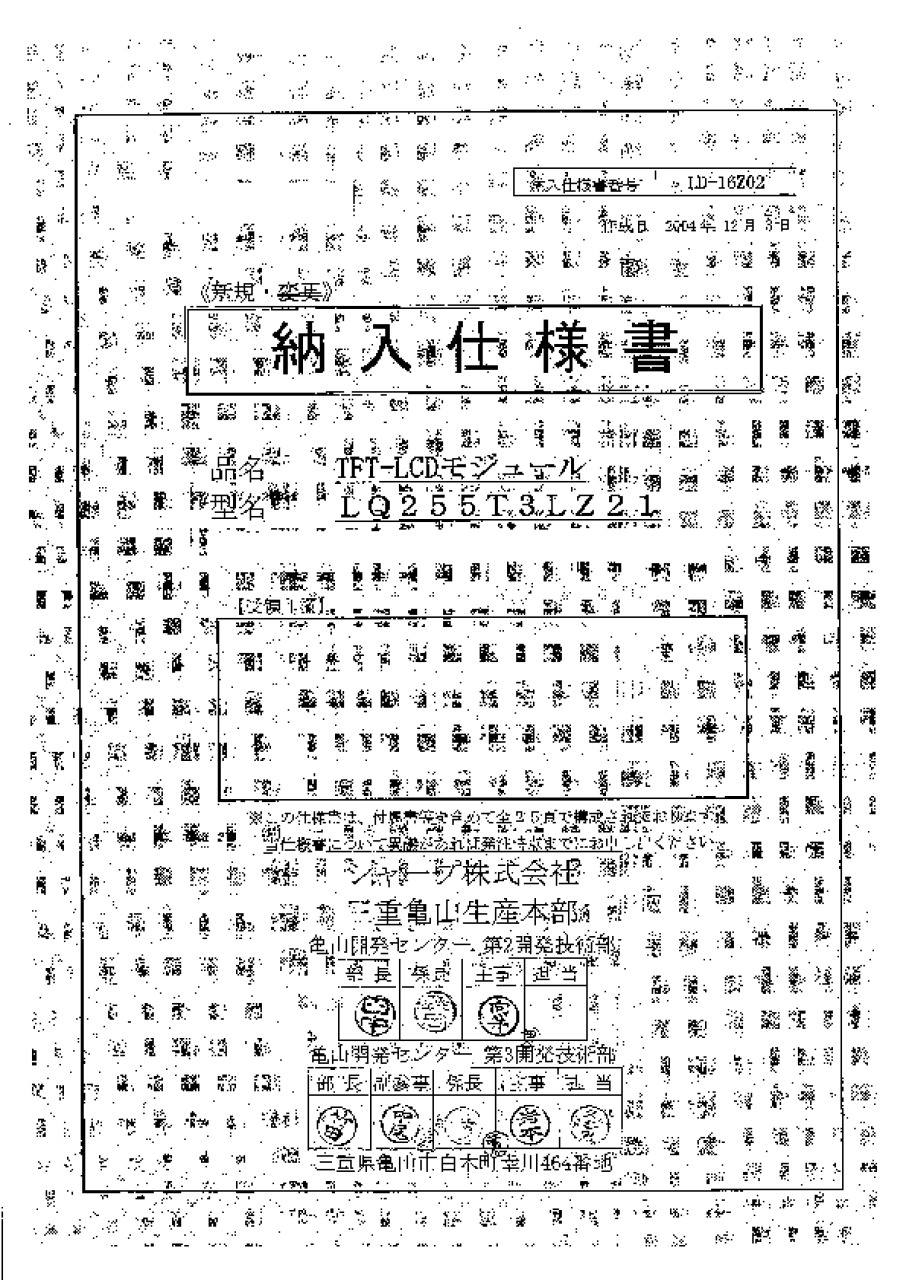 納入仕様書番号 LD-16Z02
作成日 2004年 12月 3日
《新規・変更》
納入仕様書
品名 TFT-LCDモジュール
型名 LQ255T3LZ21
【受領印欄】
※この仕様書は、付属書等を含めて全25頁で構成されております。
当仕様書について異議があれば発注時点までにお申し出ください
シャープ株式会社
三重亀山生産本部
亀山開発センター 第2開発技術部
部長 係長 主事 担当
亀山開発センター 第3開発技術部
部長 副参事 係長 主事 担当
三重県亀山市白木町幸川464番地